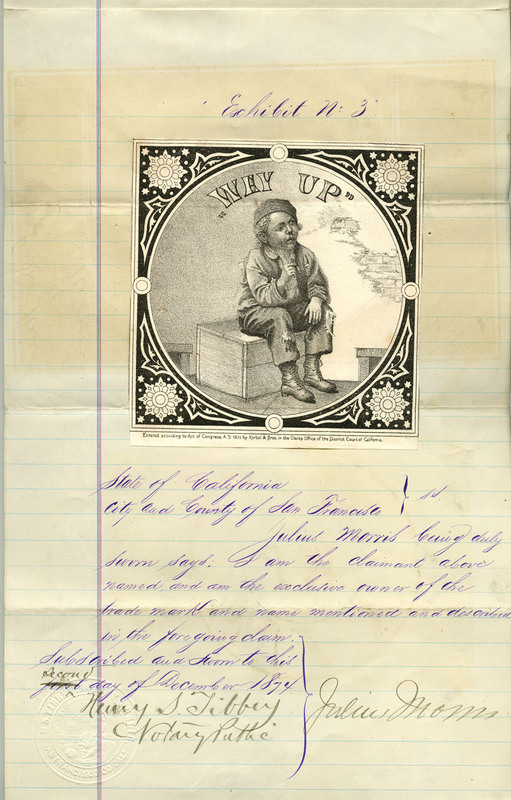 "Exhibit No: 3"
"WAY UP"
Entered according to Act of Congress, A.D. 1870 by Korbel & Bros. in the Clerks Office of the District Court of California.
State of California
City and County of San Francisco } ss
Julius Morris being duly
sworn says: I am the claimant above
named and am the exclusive owner of the
trade mark and name mentioned and described
in the foregoing claim.
Subscribed and Sworn to this
second
first day of December 1874
Henry S. Tibbey
Notary Public
Julius Morris